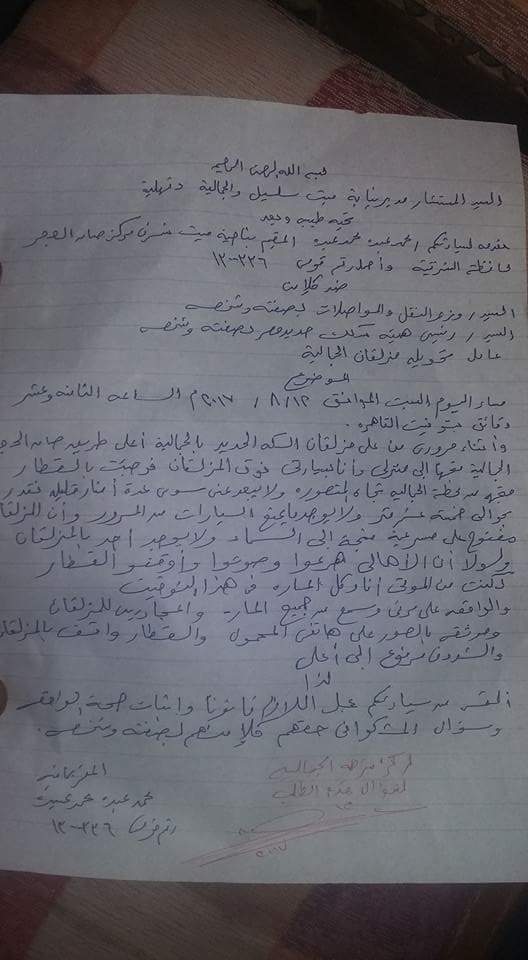 بسم الله الرحمن الرحيم
السيد المستشار مدير نيابة ميت سلسيل والجمالية دقهلية
تحية طيبة وبعد
مقدمه لسيادتكم محمد عبده محمد عبده المقيم بناحية ميت مركز صان الحجر
محافظة الشرقية وأحمل رقم قومى ١٣٠٣٣٦
ضد كلا من
السيد / وزير النقل والمواصلات بصفته وشخصه
السيد / رئيس هيئة سكك حديد مصر بصفته وشخصه
عامل تحويله مزلقان الجمالية
الموضوع
مساء اليوم السبت الموافق ١٢ / ٨ / ٢٠١٧ م الساعه الثانيه وعشر
دقائق بتوقيت القاهره .
وأثناء مرورى من على مزلقان السكه الحديد بالجمالية أعلى طريق صان الحجر
الجمالية متجها إلى منزلى وأنا بسيارتى فوق المزلقان فوجئت بالقطار
متجه من محطة الجماليه تجاه المنصوره ولا يبعد عنى سوى عدة أمتار قليله تقدر
بحوالى خمسة عشر متر ولا يوجد ما يمنع السيارات من المرور وأن المزلقان
مفتوح على مصرعية متجة إلى السماء ولا يوجد أحد بالمزلقان
ولولا أن الأهالى هرعوا وصوتوا وأوقفوا القطار
لكنت من الموتى أنا وكل الماره فى هذا التوقيت
والواقعه على مرئى ومسمع من جميع الماره والمجاورين للمزلقان
وموثقه بالصور على هاتفى المحمول والقطار واقف بالمزلقان
مرفوع إلى أعلى
لذا
ألتمس من سيادتكم عمل اللازم قانونا واثبات صحة الواقعه
وسؤال المشكو فى حقهم كلا منهم بصفته وشخصه .
مركز شرطة الجماليه
لسؤال مقدم الطلب
مقدمه
محمد عبده محمد عبده
رقم قومى ١٣٠٣٣٦